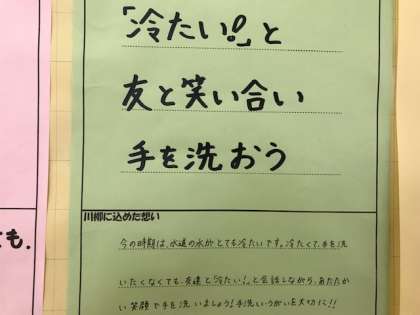 「冷たい!」と
友と笑い合い
手を洗おう
川柳に込めた想い
今の時期は、水道の水がとても冷たいです。冷たくて、手を洗
いたくなくても、友達と「冷たい!」と会話しながら、あたたか
い笑顔で手を洗いましょう!手洗いうがいを大切に!!
も.